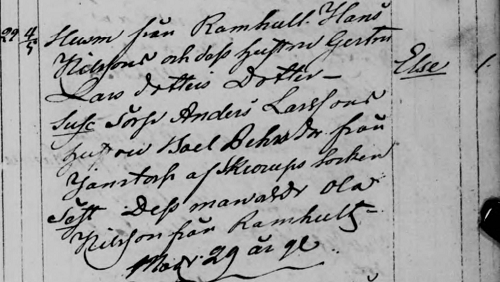 29 4/5 Hem från Ramhult. Hans
Nilssons och dess hustru Gertru
Lars dotters Dotter – Else 1.
Susc Sörgr Anders Larssons
hustru Boel Pehrs dr från
Jonstorp af Skiorups Socken
Test Dess man Ola
Nilsson från Ramhult –
Modr. 29 år gl